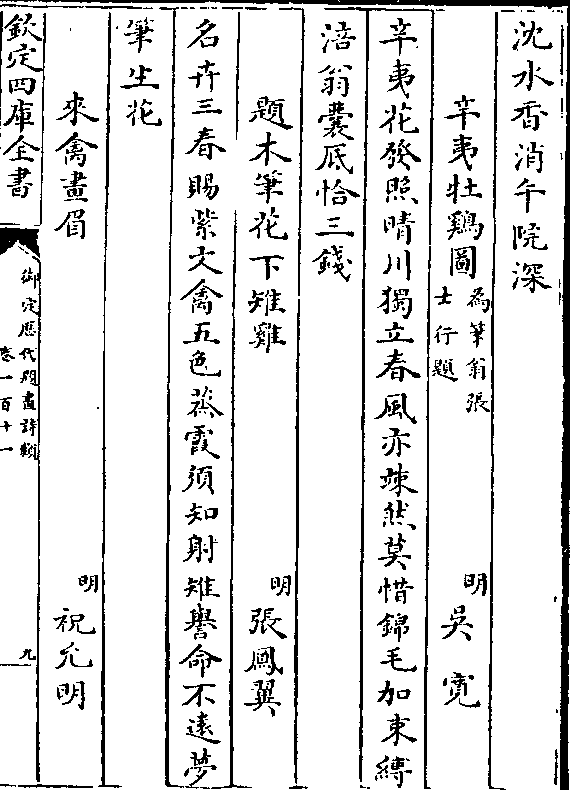 沈水香消午院深
辛夷牡鷄圖 為筆翁張士行題 明 吳寛
辛夷花發照晴川獨立春風亦竦然莫惜錦毛加束縛
涪翁囊底恰三錢
題木筆花下雉雞 明 張鳳翼
名卉三春賜紫文禽五色蒸霞須知射雉譽命不遠夢
筆生花
來禽畫眉 明 祝允明
欽定四庫全書
御定歷代題畫詩類
卷一百十一
九